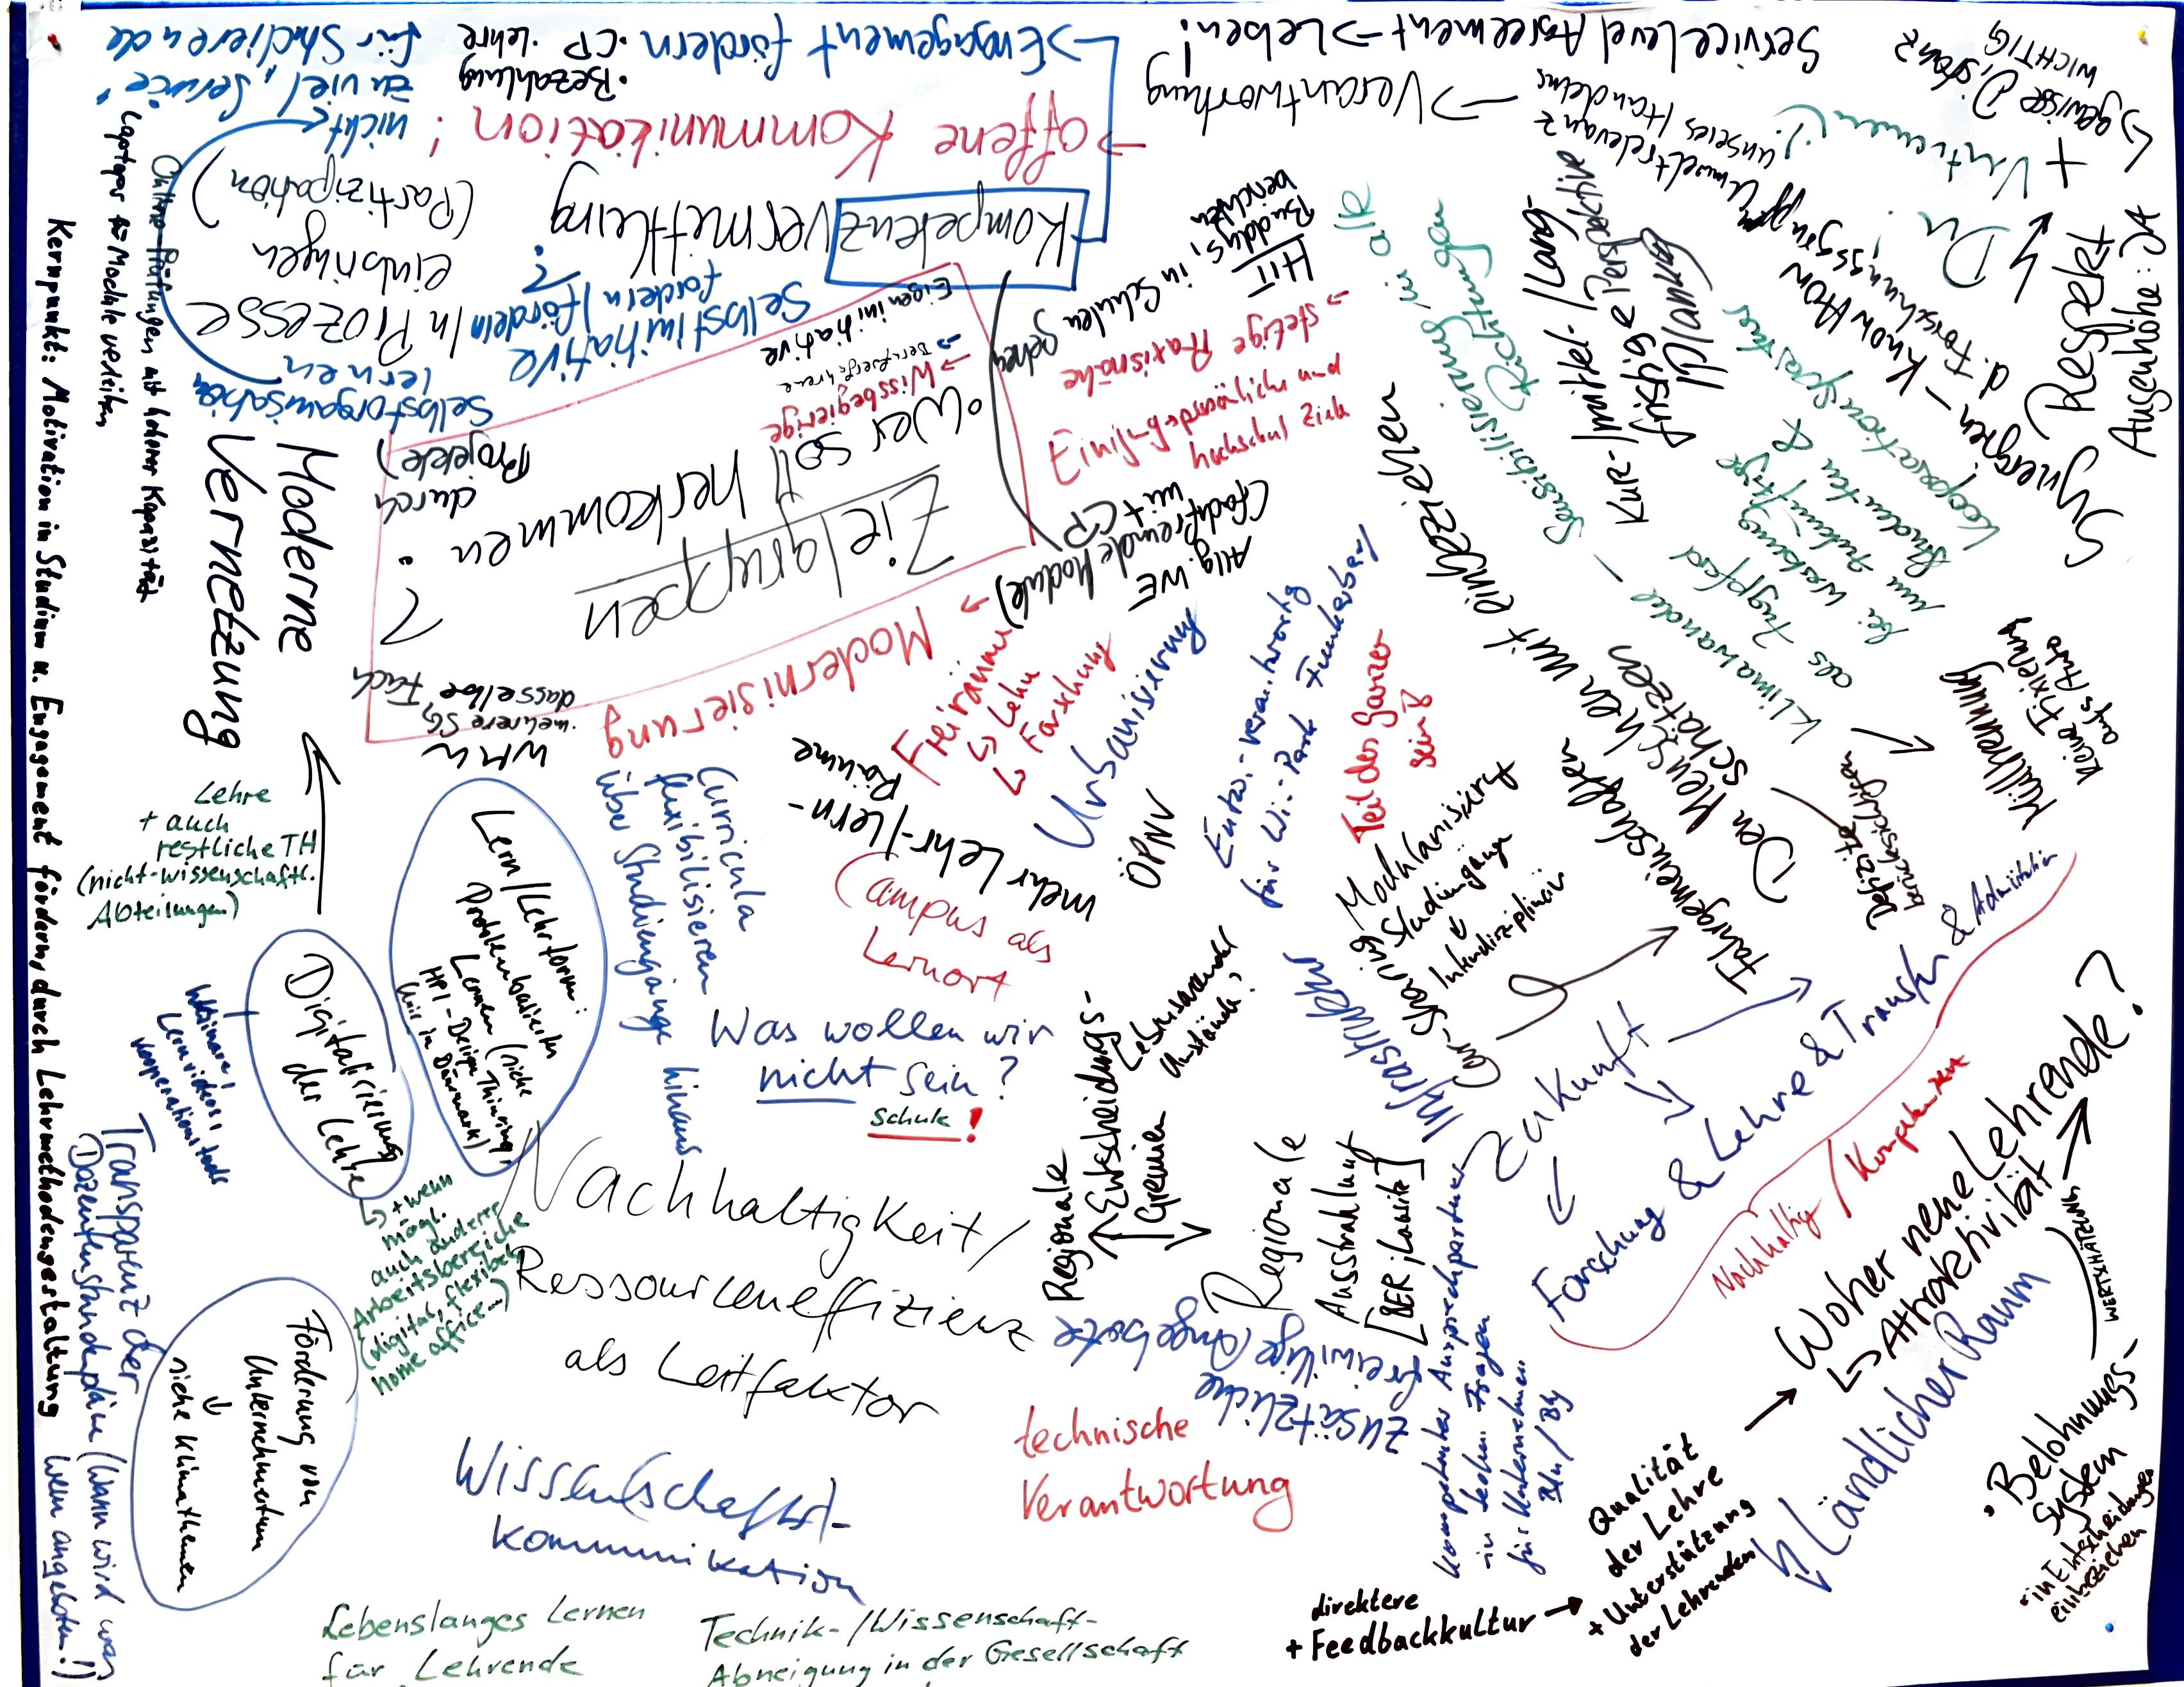 für Studierende
zu viel "Service"
nicht
→ Engagement fördern
· CP · Lehre
· Bezahlung
→ offene Kommunikation!
Service Level Agreement → Leben!
→ Verantwortung
↳ gewisse Distanz
WICHTIG
+ Vertrauen (!)
Du !
Respekt
Augenhöhe: JA
Synergien - Know How
d. Forschungsgruppen
Umweltrelevanz
unseres Handelns
Kompetenzvermittlung
In Prozesse
einbringen
(Partizipation)
Selbstinitiative
fordern/fördern
?
Selbstorganisation
lernen
Online-Prüfungen mit hoher Kapazität
Laptops für Module verleihen
Kernpunkt: Motivation in Studium u. Engagement fördern, durch Lehrmethodengestaltung
Moderne
Vernetzung
Lehre
+ auch
restliche TH
(nicht-wissenschaftl.
Abteilungen)
Zielgruppen
· Wer soll herkommen
?
Eigeninitiative
→ Berufserfahrene
→ Wissbegierige
durch
Projekte)
WMW
· mehrere SG,
dasselbe Fach
Modernisierung
→ Freiräume
↳ Lehre
↳ Forschung
HIT
Buddys, in Schulen gehen
berichten
→ stetige Praxisnähe
Einfluss persönliche und
hochschul Ziele
Allg. WE
(fachfremde Module)
mit CP
Sensibilisierung in alle
Richtungen
Kur-/mittel-/lang-
fristige Perspektive
/Planung
Klimawandel -
als Zugpferd
bei Werbung
um zukünftige
Studenten &
Kooperationspartner
Mülltrennung
keine Fixierung
aufs Auto
Den Menschen mit einbeziehen
schätzen
Defizite
berücksichtigen
Fahrgemeinschaften
Car-Sharing
Modularisierung
Studiengänge
↓
Interdisziplinär
Teil des Ganzen
sein
Urbanisierung
ÖPNV
für Wi.-Park
mehr Lehr-/Lern-
Räume
Campus als
Lernort
Curricula
flexibilisieren
über Studiengänge hinaus
Lern/Lehrform:
Problembasiertes
Lernen (siehe
HPI-Design Thinking,
wie in Dänemark)
Digitalisierung
der Lehre
↳ + wenn
mögl.
auch andere
Arbeitsbereiche
(digital, flexibel,
home office...)
Webinare,
Lernvideos,
Kooperationstools
Transparenz der
Dozentenstundenpläne (Wann wird was
wem angeboten!)
Förderung von
Unternehmertum
↓
siehe Klimathemen
Was wollen wir
nicht sein?
Schule!
Nachhaltigkeit/
Ressourceneffizienz
als Leitfaktor
Wissen(schafts)-
kommunikation
Lebenslanges Lernen
für Lehrende
Technik-/Wissenschaft-
Abneigung in der Gesellschaft
technische
Verantwortung
zusätzliche
freiwillige Angebote
Regionale
Entscheidungs-
Gremien
Regionale
Ausstrahlung
[BER, Lausitz]
Infrastruktur
Zukunft
Forschung & Lehre & Transfer &
Nachhaltig
/ Kompetenzen
kompetenter Ansprechpartner
in techn. Fragen
für Unternehmen
Bln/Bbg
Woher neue Lehrende?
↳ Attraktivität
WERTSCHÄTZUNG
Ländlicher Raum
· Belohnungs-
system
· in Entscheidungen
einbeziehen
Qualität
der Lehre
+ Unterstützung
der Lehrenden
direktere
+ Feedbackkultur →